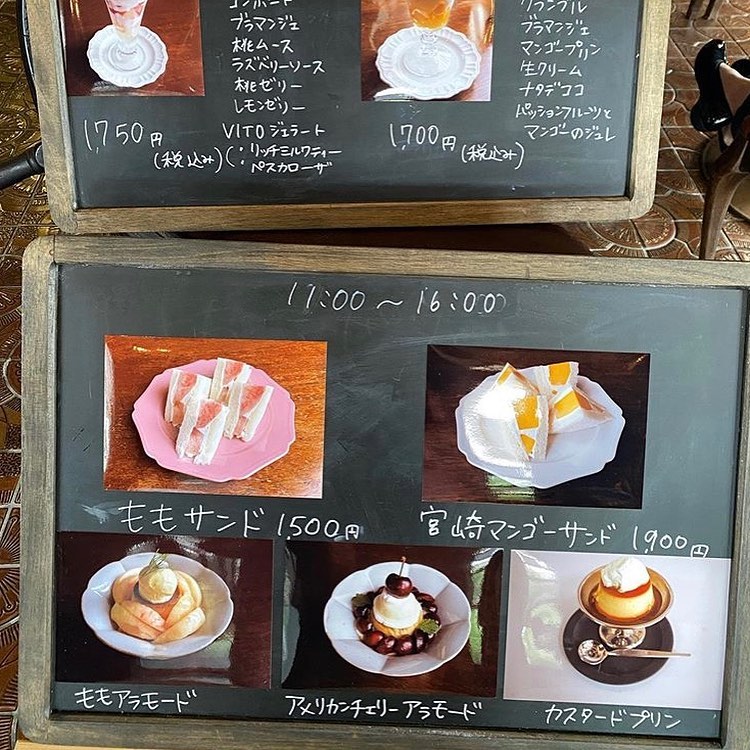 コンポート
ブラマンジェ
桃ムース
ラズベリーソース
桃ゼリー
レモンゼリー
VITOジェラート
(:リッチミルクティー
ペスカローザ
1,750円
(税込み)
クランブル
ブラマンジェ
マンゴープリン
生クリーム
ナタデココ
パッションフルーツと
マンゴーのジュレ
1,700円
(税込み)
11:00～16:00
ももサンド 1,500円
宮崎マンゴーサンド 1,900円
ももアラモード
アメリカンチェリーアラモード
カスタードプリン